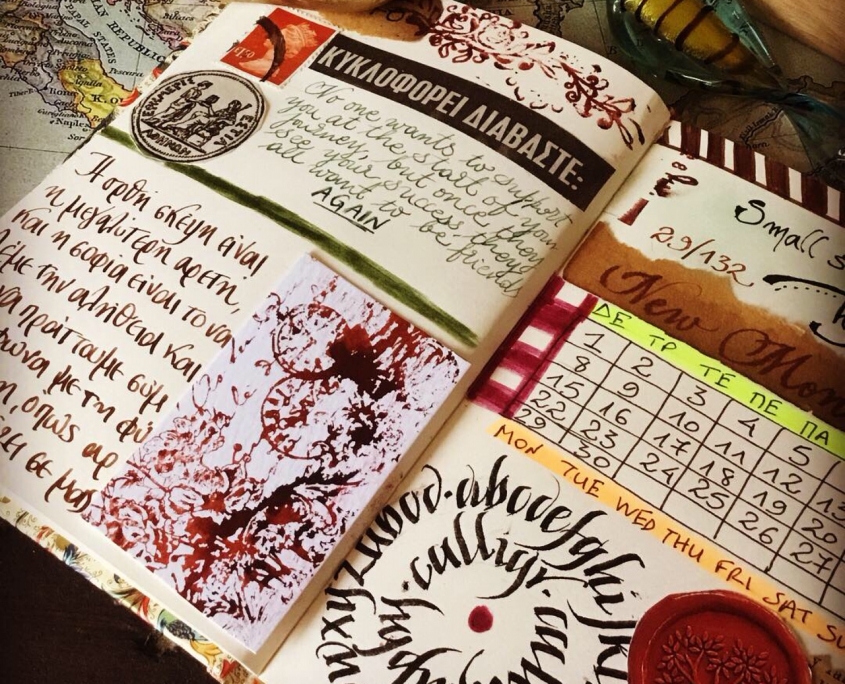 ΚΥΚΛΟΦΟΡΕΙ ΔΙΑΒΑΣΤΕ:
No one wants to support
you at the start of your
journey, but once they
see your success, they
all want to be friends
AGAIN
Η ορθή σκέψη είναι
η μεγαλύτερη αρετή,
και η σοφία είναι το να
λέμε την αλήθεια και
να πράττουμε σύμ
φωνα με τη φύ
ση, όπως αρ
έζει σε μας
Small s
29/132
New Mon
ΔΕ ΤΡ ΤΕ ΠΕ ΠΑ
1 2 3 4 5
8 9 10 11 12 13
15 16 17 18 19 20
22 23 24 25 26 27
29 30
MON TUE WED THU FRI SAT SU
abcdefghijkl
calligr